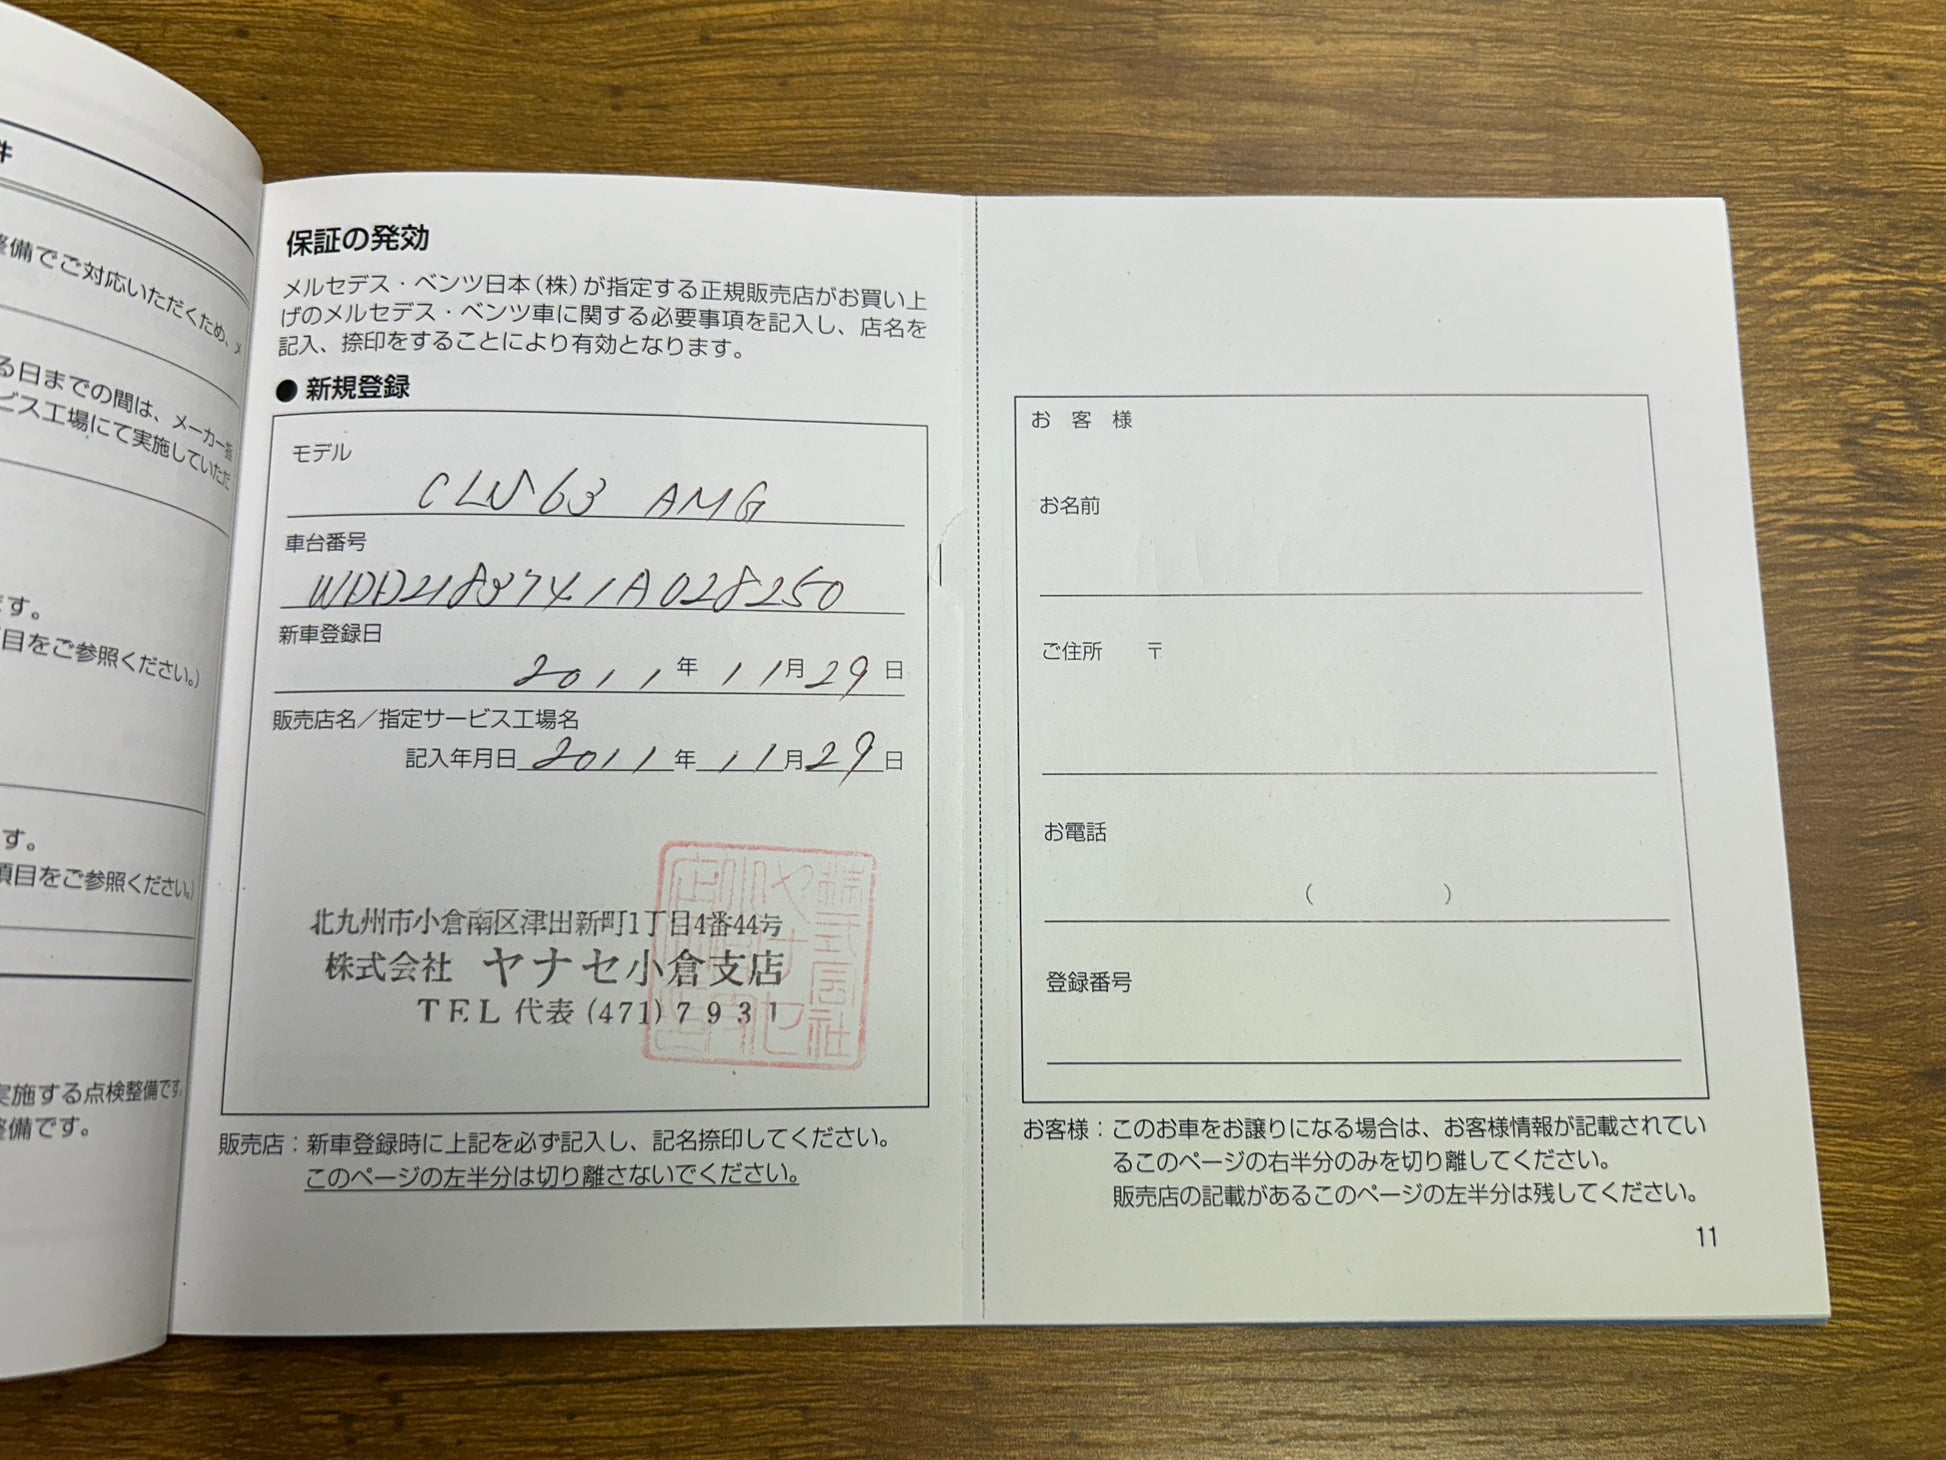 件
整備でご対応いただくため、メ
る日までの間は、メーカー指
ビス工場にて実施していただ
です。
項目をご参照ください。)
す。
項目をご参照ください。)
実施する点検整備です。
整備です。
保証の発効
メルセデス・ベンツ日本(株)が指定する正規販売店がお買い上
げのメルセデス・ベンツ車に関する必要事項を記入し、店名を
記入、捺印をすることにより有効となります。
● 新規登録
モデル
CLS63 AMG
車台番号
WDD2183741A028250
新車登録日
2011年11月29日
販売店名／指定サービス工場名
記入年月日 2011年11月29日
北九州市小倉南区津田新町1丁目4番44号
株式会社 ヤナセ小倉支店
TEL 代表(471)7931
販売店：新車登録時に上記を必ず記入し、記名捺印してください。
このページの左半分は切り離さないでください。
お客様
お名前
ご住所 〒
お電話
( )
登録番号
お客様：このお車をお譲りになる場合は、お客様情報が記載されてい
るこのページの右半分のみを切り離してください。
販売店の記載があるこのページの左半分は残してください。
11